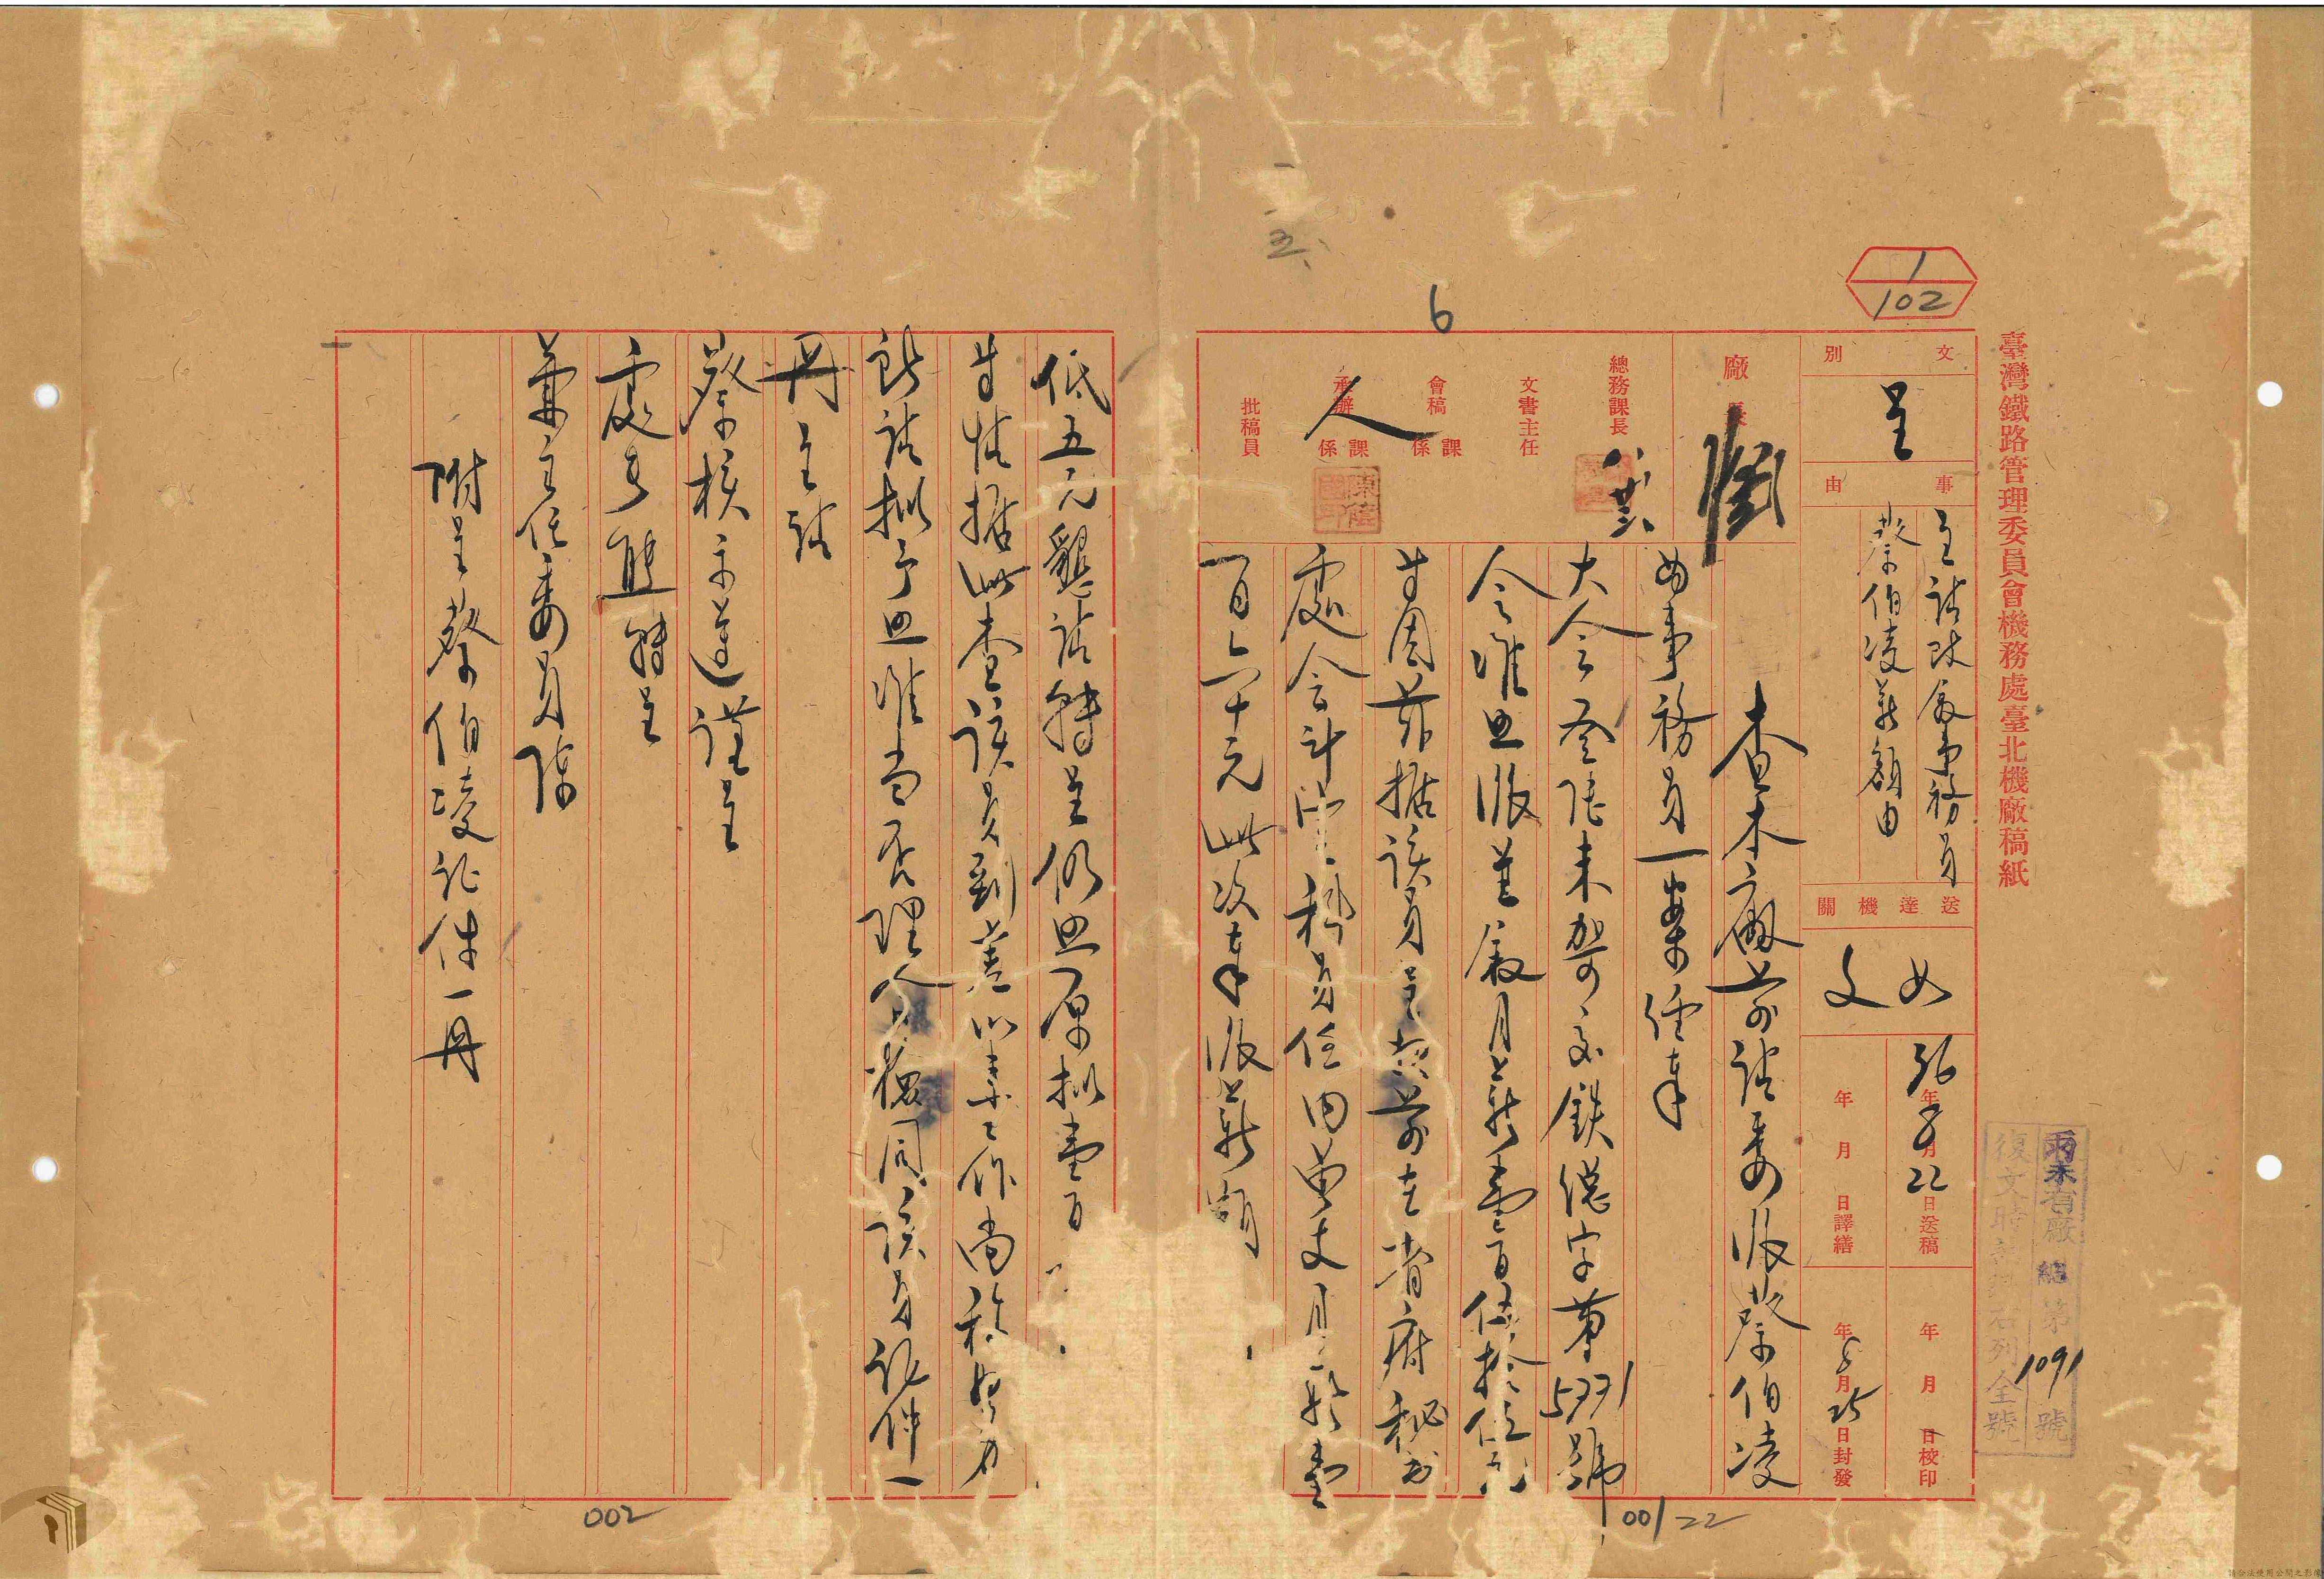 臺灣鐵路管理委員會機務處臺北機廠稿紙
1
102
文別
呈
事由
呈請改敘事務員
蔡伯凌薪額由
送達機關
如文
36年8月22日送稿
年 月 日譯繕
年 月 日校印
年8月25日封發
廠長
總務課長
文書主任
會稿 課 係
承辦 課 係
人
批稿員
6
五、
查本廠前請委派蔡伯凌
為事務員一案經奉
大令 未 鐵 字第5771號
令准照派並敘月薪壹百伍拾伍元
等因茲據該員呈 前在省府秘書
處會計 科員任內 支月薪壹
百六十元此次奉派薪額
低五元懇請轉呈仍照原拟壹百
等情據此查該員到差以來工作尚稱努力
所請拟予照准當否理合 檢同該員証件一
冊呈請
察核示遵謹呈
處長 轉呈
兼主任委員陳
附呈蔡伯凌証件一冊
廠 總 第1091號
復文時 右列全號
002
001 22